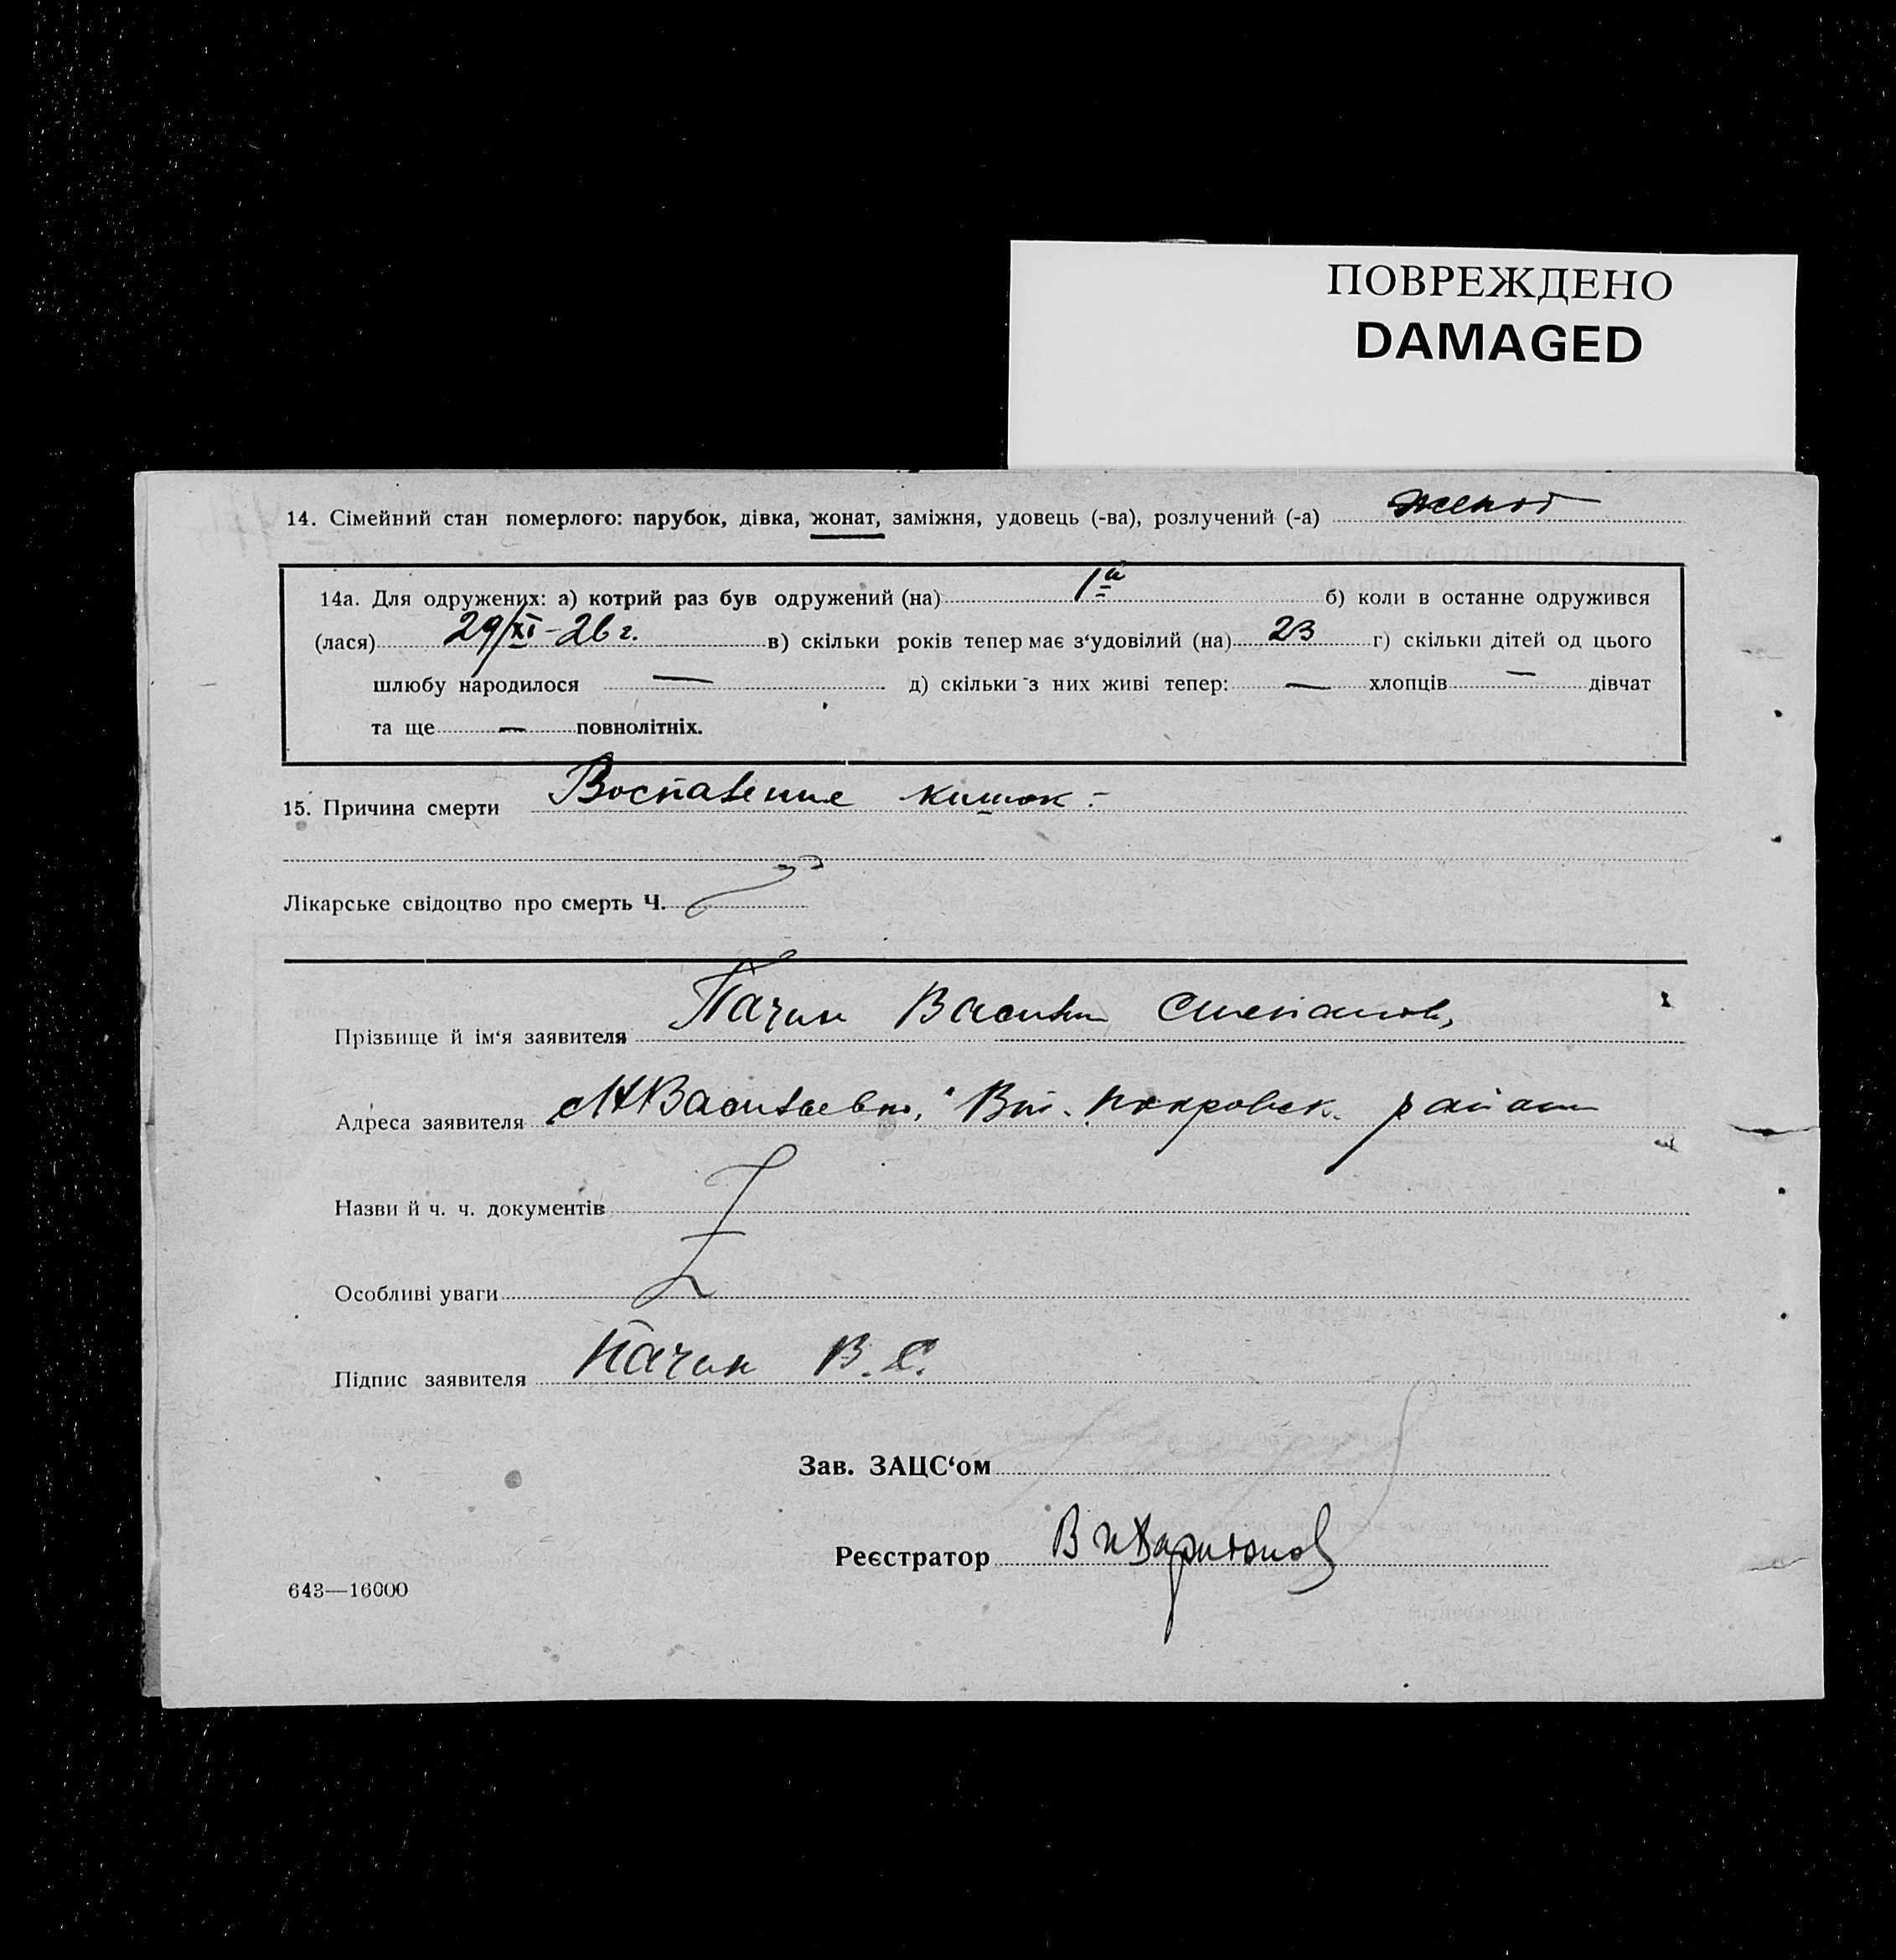 ПОВРЕЖДЕНО
DAMAGED
14. Сімейний стан померлого: парубок, дівка, жонат, заміжня, удовець (-ва), розлучений (-а) женат
14а. Для одружених: а) котрий раз був одружений (на) 1й б) коли в останне одружився
(лася) 29/XI-26 г. в) скільки років тепер має з‘удовілий (на) 23 г) скільки дітей од цього
шлюбу народилося — д) скільки з них живі тепер: — хлопців — дівчат
та ще — повнолітніх.
15. Причина смерти Воспаление кишок -
Лікарське свідоцтво про смерть Ч.
Прізвище й ім‘я заявителя Пачин Васили Степанов,
Адреса заявителя Васильевка, Покровск. район
Назви й ч. ч. документів
Особливі уваги
Підпис заявителя Пачин В. С.
Зав. ЗАЦС‘ом
Реєстратор В Харитонов
643—16000